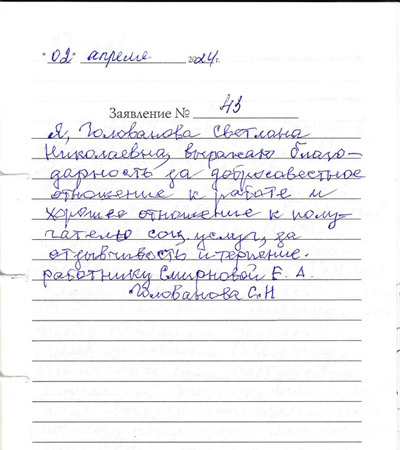 "02" апреля 2024г.
Заявление № 43
Я, Голованова Светлана
Николаевна, выражаю благо-
дарность за добросовестное
отношение к работе и
хорошее отношение к полу-
чателю соц. услуг, за
отзывчивость и терпение.
работнику Смирновой Е. А.
Голованова С.Н